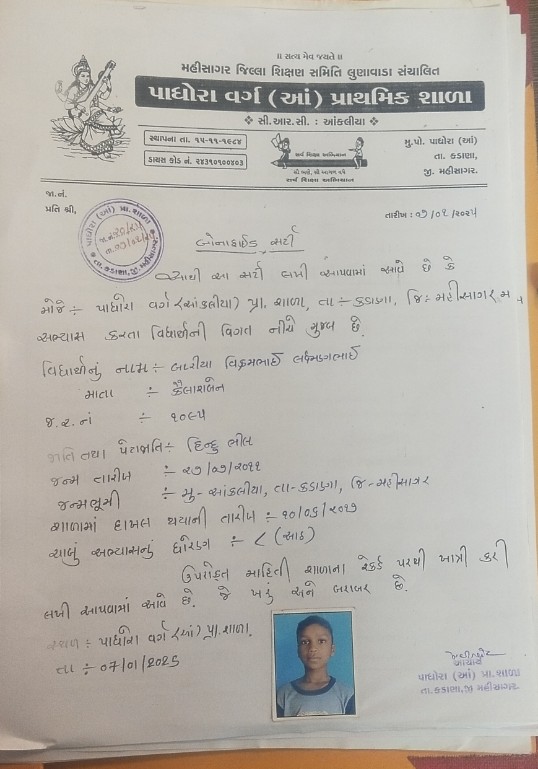 ॥ સત્ય મેવ જયતે ॥
મહીસાગર જિલ્લા શિક્ષણ સમિતિ લુણાવાડા સંચાલિત
પાધોરા વર્ગ (આં) પ્રાથમિક શાળા
❖ સી.આર.સી. : આંકલીયા ❖
સ્થાપના તા. ૧૫-૧૧-૧૯૮૪
ડાયસ કોડ નં. ૨૪૩૧૦૧૦૦૪૦૩
સર્વ શિક્ષા અભિયાન
સૌ ભણે, સૌ આગળ વધે
સર્વ શિક્ષા અભિયાન
મુ.પો. પાધોરા (આં)
તા. કડાણા,
જી. મહીસાગર.
જા.નં.
પ્રતિ શ્રી,
તારીખ : ૦૭/૦૧/૨૦૨૫
બોનાફાઈડ સર્ટી
આથી આ સર્ટી લખી આપવામાં આવે છે કે
મોજે ÷ પાધોરા વર્ગ (આંકલીયા) પ્રા. શાળા, તા ÷ કડાણા, જિ÷ મહીસાગર માં
અભ્યાસ કરતા વિદ્યાર્થીની વિગત નીચે મુજબ છે.
વિદ્યાર્થીનું નામ ÷ બારીયા વિક્રમભાઈ લક્ષ્મણભાઈ
માતા ÷ કૈલાશબેન
જ.ર.નં ÷ ૧૦૯૫
જાતિ તથા પેટાજાતિ÷ હિન્દુ ભીલ
જન્મ તારીખ ÷ ૨૭/૦૭/૨૦૧૧
જન્મભૂમી ÷ મુ- આંકલીયા, તા-કડાણા, જિ-મહીસાગર
શાળામાં દાખલ થયાની તારીખ ÷ ૧૦/૦૬/૨૦૧૭
ચાલુ અભ્યાસનું ધોરણ ÷ ૮ (આઠ)
ઉપરોક્ત માહિતી શાળાના રેકર્ડ પરથી ખાત્રી કરી
લખી આપવામાં આવે છે. જે ખરું અને બરાબર છે.
સ્થળ ÷ પાધોરા વર્ગ (આં) પ્રા. શાળા.
તા ÷ ૦૭/૦૧/૨૦૨૫
આચાર્ય
પાધોરા (આં) પ્રા. શાળા
તા.કડાણા,જી મહીસાગર.